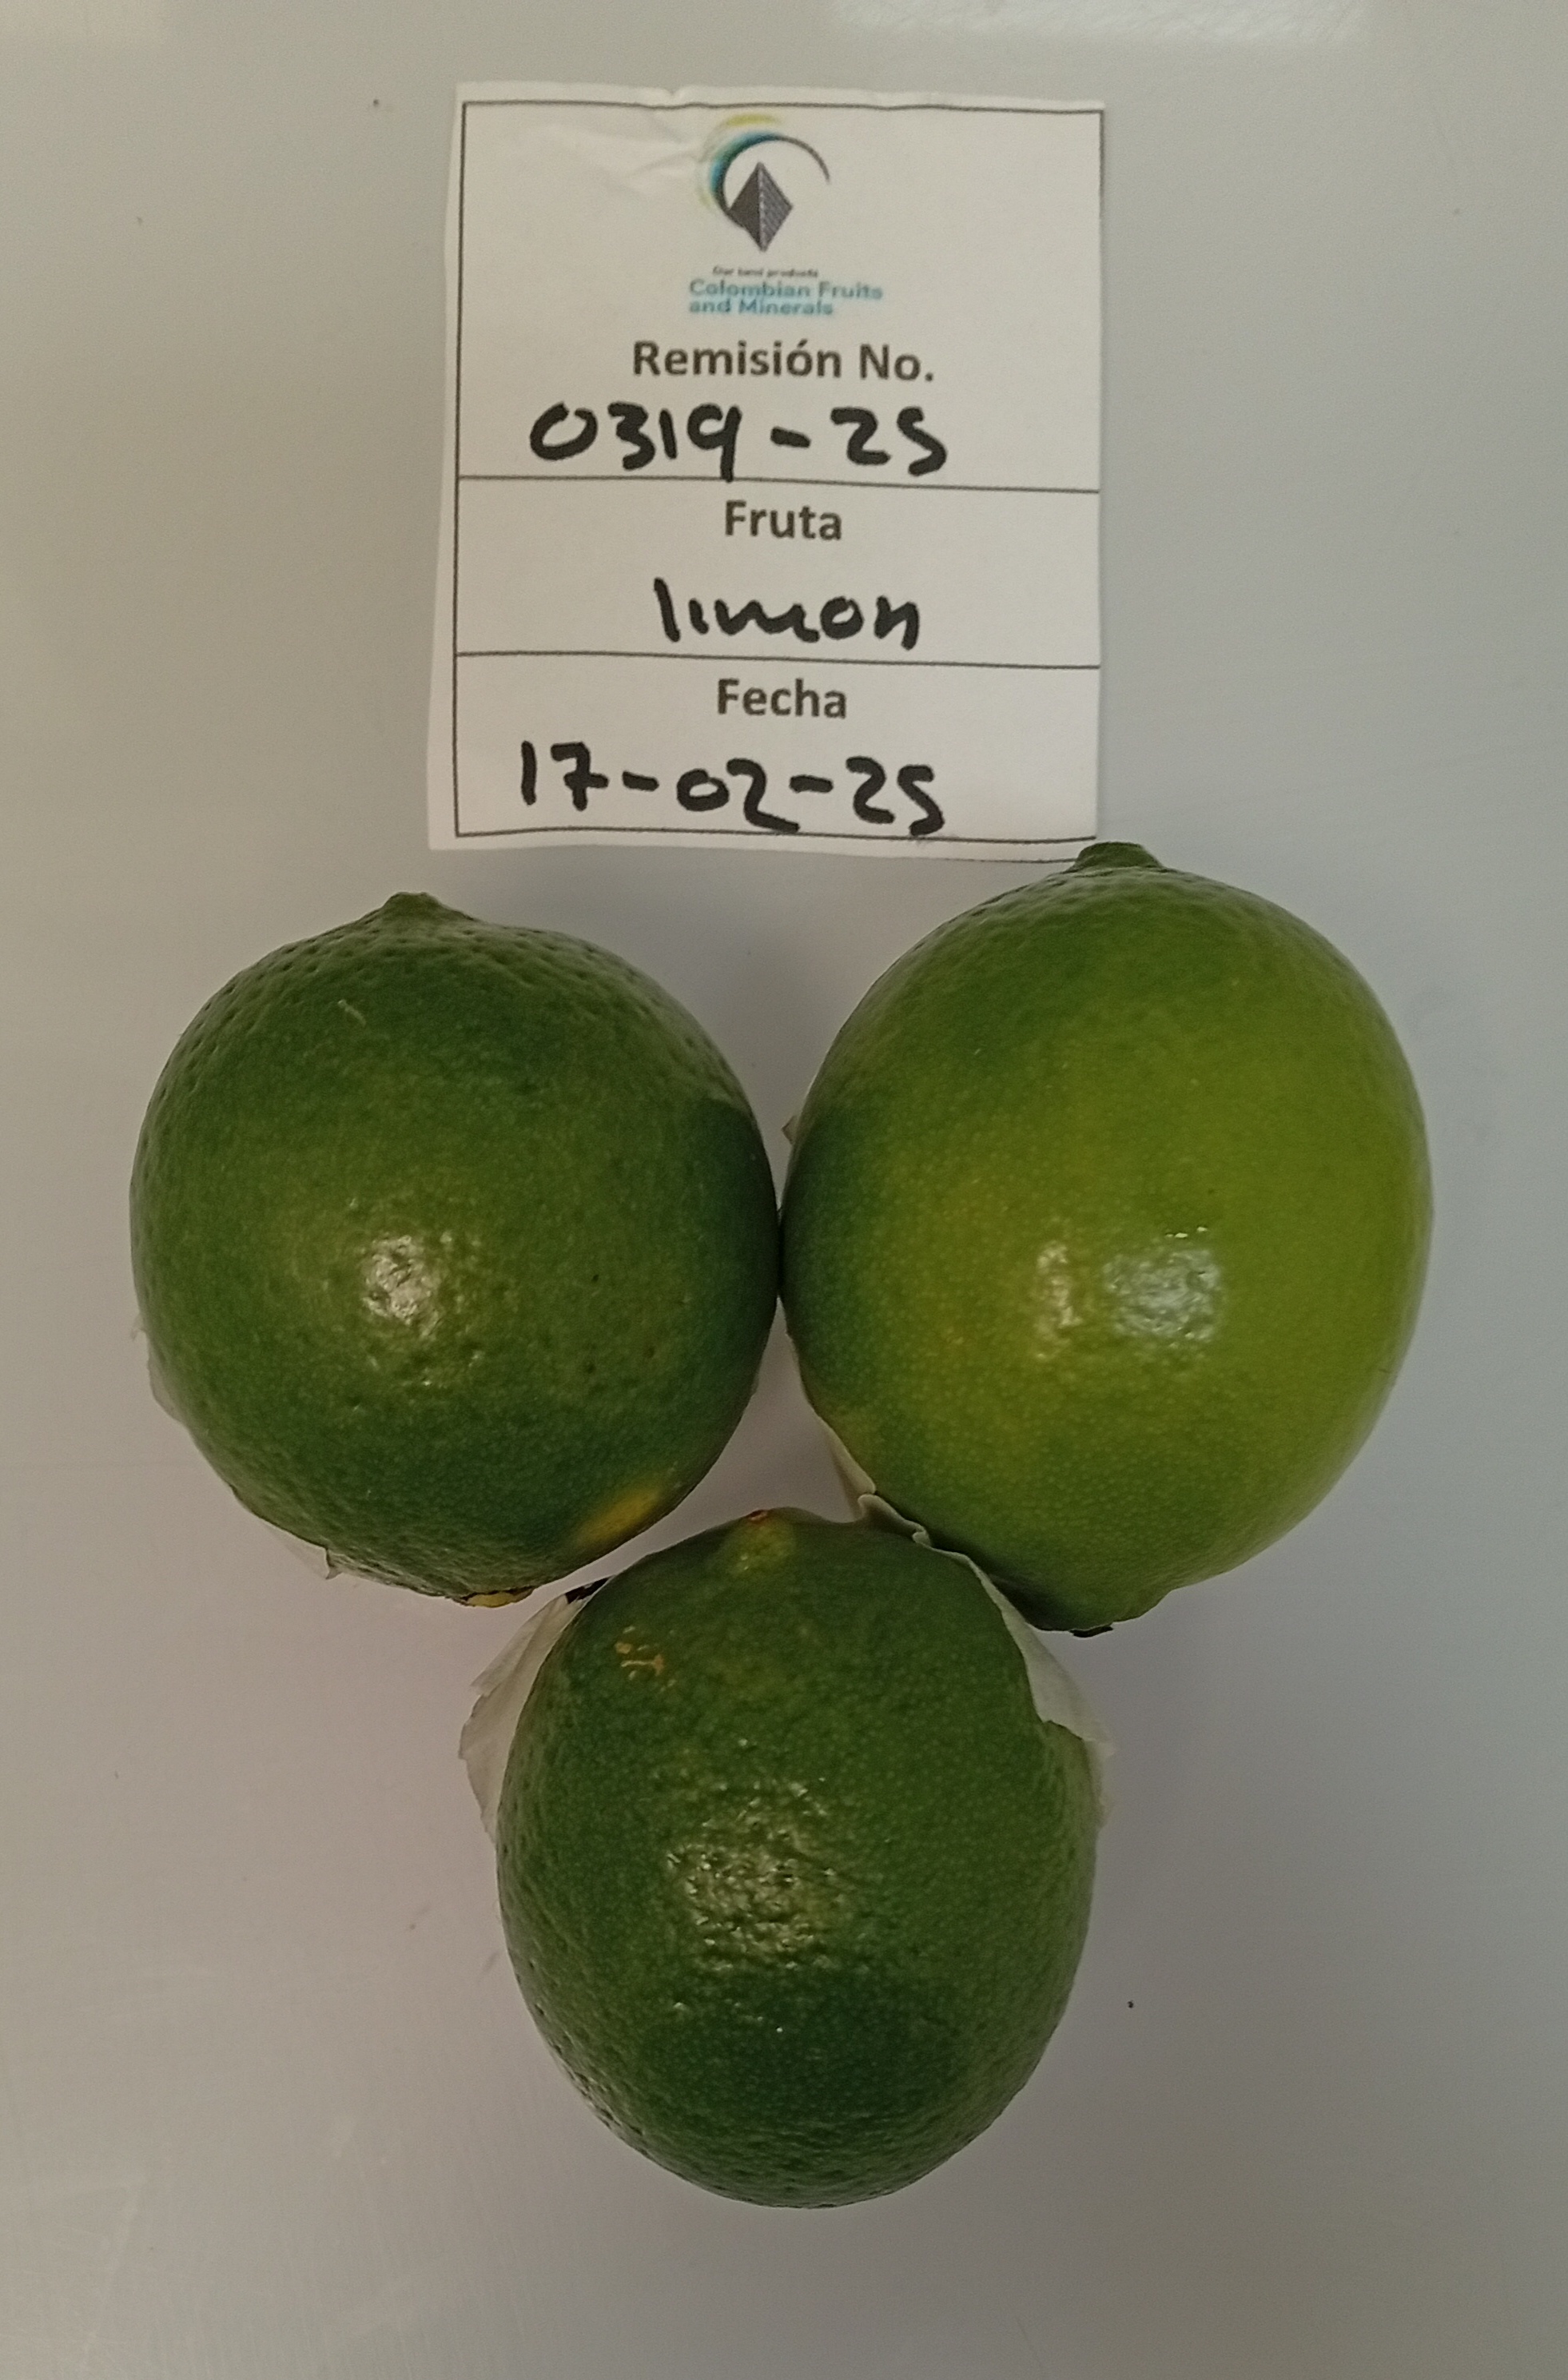 Our land products
Colombian Fruits
and Minerals
Remisión No.
0319-25
Fruta
limon
Fecha
17-02-25